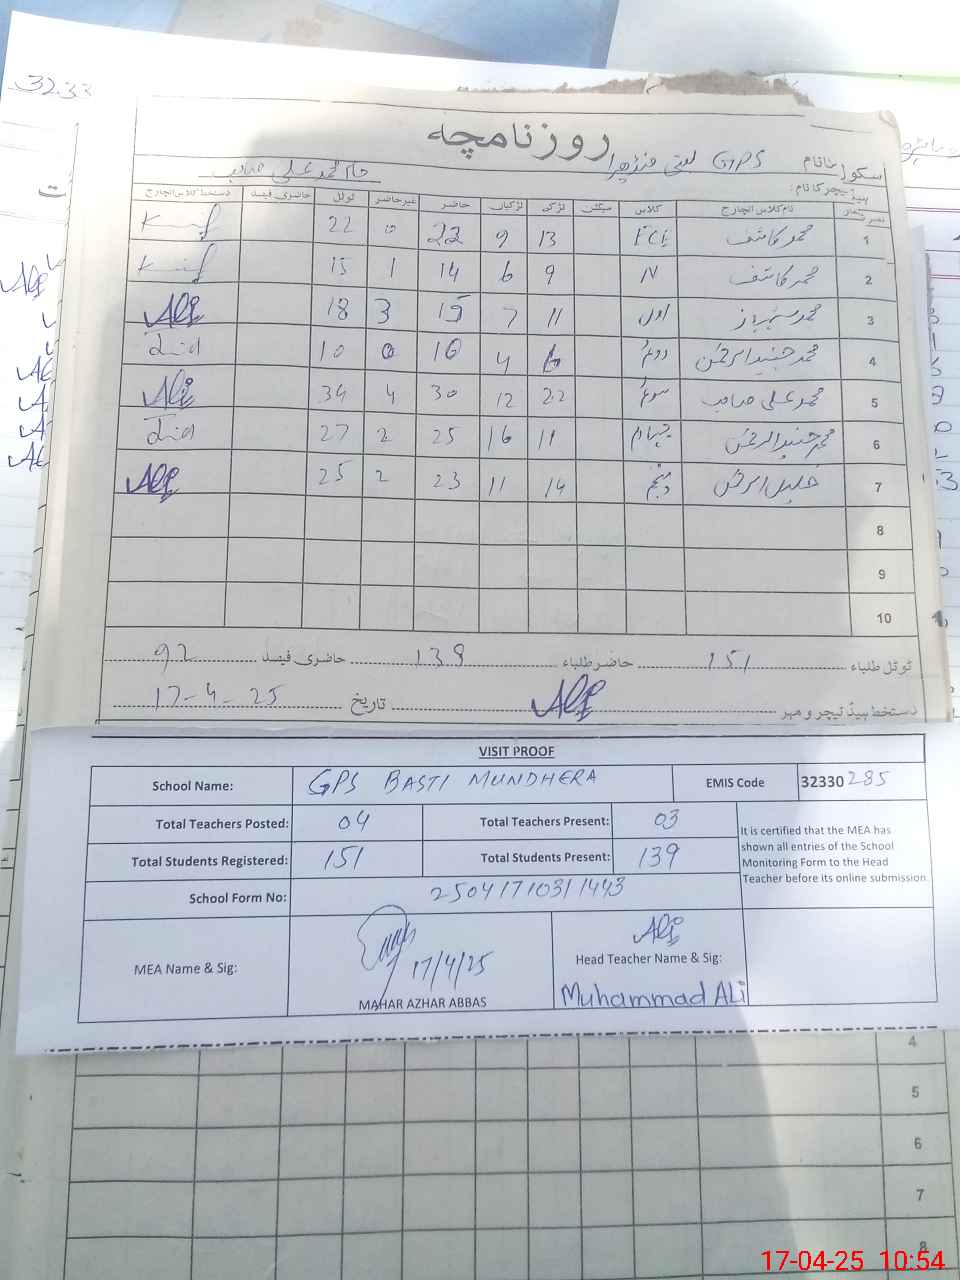 3233
روزنامچہ
سکول کا نام GPS بستی منڈھیرا
ہیڈ ٹیچر کا نام: محمد علی صاحب
نمبر شمار نام کلاس انچارج کلاس سیکشن لڑکے لڑکیاں حاضر غیر حاضر ٹوٹل حاضری فیصد دستخط کلاس انچارج
1 محمد کاشف ECE 13 9 22 0 22
2 محمد کاشف N 9 6 14 1 15
3 محمد شہباز اول 11 7 15 3 18 Ali
4 محمد جنید الرحمن دوئم 6 4 10 0 10
5 محمد علی صاحب سوئم 22 12 30 4 34 Ali
6 محمد جنید الرحمن چہارم 11 16 25 2 27
7 خلیل الرحمن پنجم 14 11 23 2 25 Ali
8
9
10
ٹوٹل طلباء 151 حاضر طلباء 139 حاضری فیصد 92
دستخط ہیڈ ٹیچر و مہر Ali تاریخ 17-4-25
VISIT PROOF
School Name: GPS BASTI MUNDHERA EMIS Code 32330285
Total Teachers Posted: 04 Total Teachers Present: 03
Total Students Registered: 151 Total Students Present: 139
It is certified that the MEA has
shown all entries of the School
Monitoring Form to the Head
Teacher before its online submission.
School Form No: 25041710311443
MEA Name & Sig: 17/4/25
MAHAR AZHAR ABBAS
Ali
Head Teacher Name & Sig:
Muhammad ALi
4
5
6
7
8
17-04-25 10:54